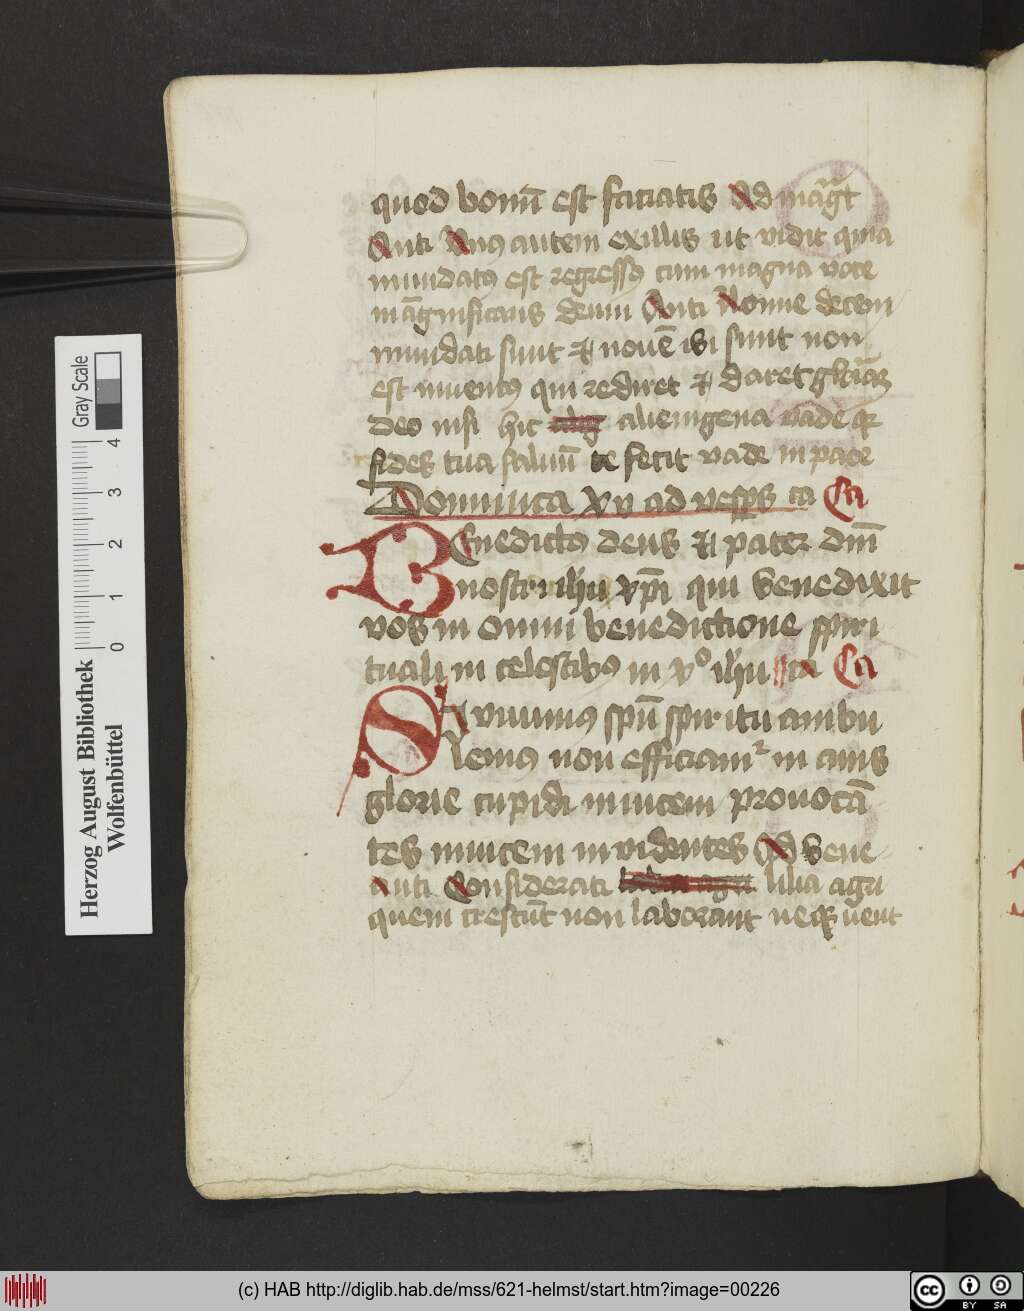 quod bonū est faciatis Ad māgͭ
Anti Unꝯ autem exillis ut vidit quia
mundatꝯ est regressꝯ cum magna voce
māgnificans deum Anti Nonne decem
mundati sunt et nouē vbi sunt non
est inuentꝯ qui rediret et daret gloriā
deo nisi hic alienigena vade qꝛ
fides tua saluū te fecit vade in pace
Dominica xv ad vesꝑs ca Ca
Benedictꝯ deus et pater dnī
nostri ihu xp̄i qui benedixit
vos in omni benedictione spiri
tuali in celestibꝯ in xº ihu ca Ca
Si viuimꝯ spū spiritu ambu
lemꝯ non efficiamꝛ in anis
glorie cupidi inuicem prouocā
tes inuicem inuidentes Ad bene
anti Considerati lilia agri
quem crescūt non laborant neqꝫ nent
Herzog August Bibliothek
Wolfenbüttel
0 1 2 3 4
Gray Scale
(c) HAB http://diglib.hab.de/mss/621-helmst/start.htm?image=00226
cc BY SA